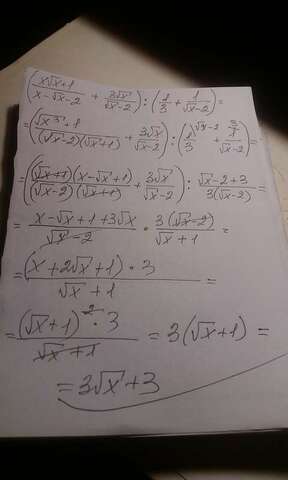 ((x√x+1)/(x-√x-2) + 3√x/(√x-2)) : (1/3 + 1/(√x-2)) =
= ((√x³+1)/((√x-2)(√x+1)) + 3√x/(√x-2)) : (1^(√x-2)/3 + 1^3/(√x-2)) =
= (((√x+1)(x-√x+1))/((√x-2)(√x+1)) + 3√x/(√x-2)) : (√x-2+3)/(3(√x-2)) =
= (x-√x+1+3√x)/(√x-2) · 3(√x-2)/(√x+1) =
= ((x+2√x+1)·3)/(√x+1) =
= ((√x+1)²·3)/(√x+1) = 3(√x+1) =
= 3√x+3